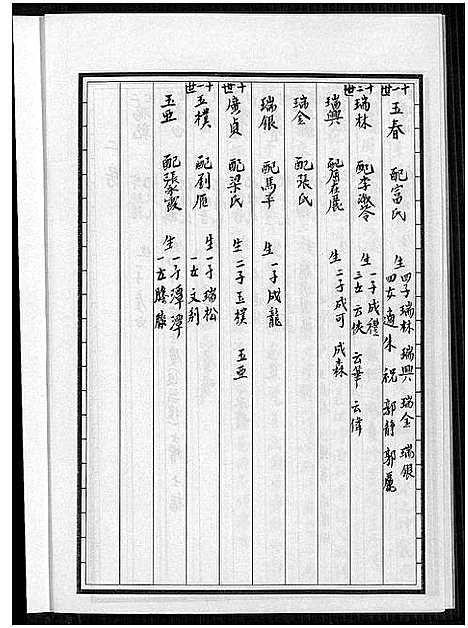 十一世 玉春 配富氏 生四子瑞林 瑞興 瑞金 瑞银
四女適朱 祝 郭靜 郭鳳
十二世 瑞林 配李淑苓 生一子成禮
三女云俠 云華 云偉
瑞興 配 生二子成可 成森
瑞金 配張氏
瑞银 配馬平 生一子成龍
十世 廣貞 配梁氏 生二子玉樸 玉亚
十一世 玉樸 配刘雁 生一子瑞松
一女文利
玉亚 配張家霞 生一子潭潭
一女朦朦